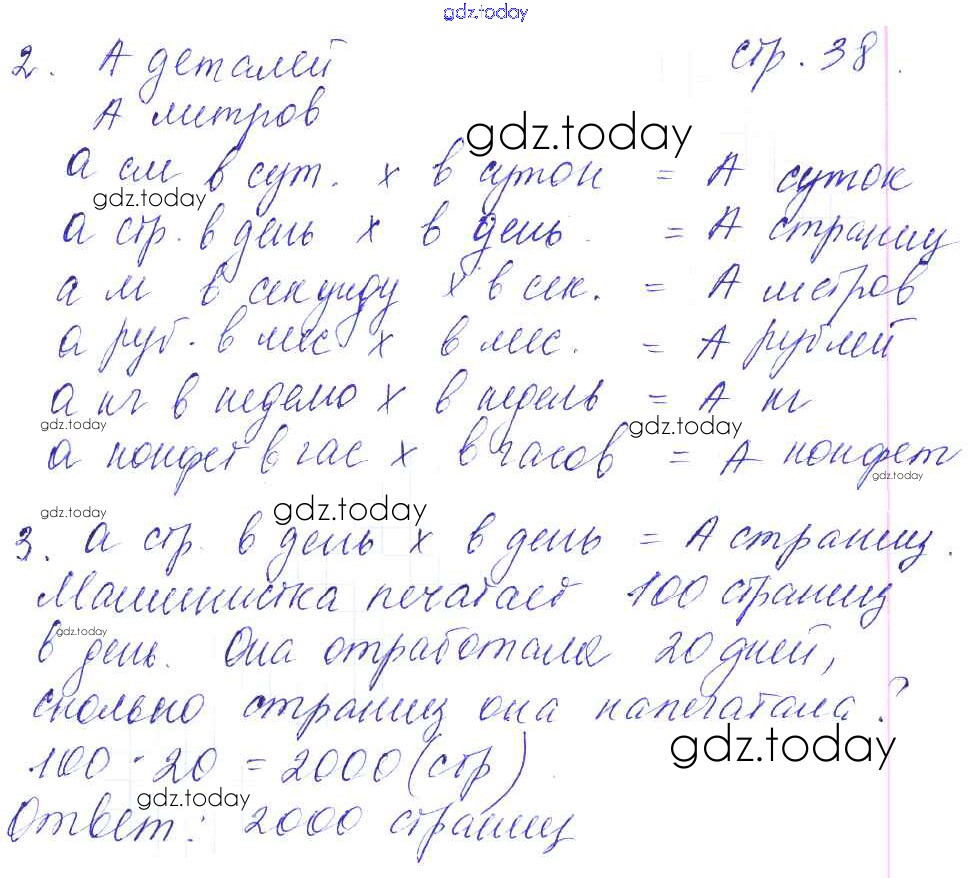 gdz.today
2. А деталей стр. 38.
А метров
gdz.today
а см в сут. х в суток = А суток
gdz.today
а стр. в день х в день. = А страниц
а м в секунду х в сек. = А метров
а руб. в мес х в мес. = А рублей
а кг в неделю х в недель = А кг
gdz.today gdz.today
а конфет в час х в часов = А конфет
gdz.today
gdz.today gdz.today
3. а стр. в день х в день = А страниц.
Машинистка печатает 100 страниц
gdz.today
в день. Она отработала 20 дней,
сколько страниц она напечатала?
gdz.today
100 · 20 = 2000 (стр)
gdz.today
Ответ: 2000 страниц